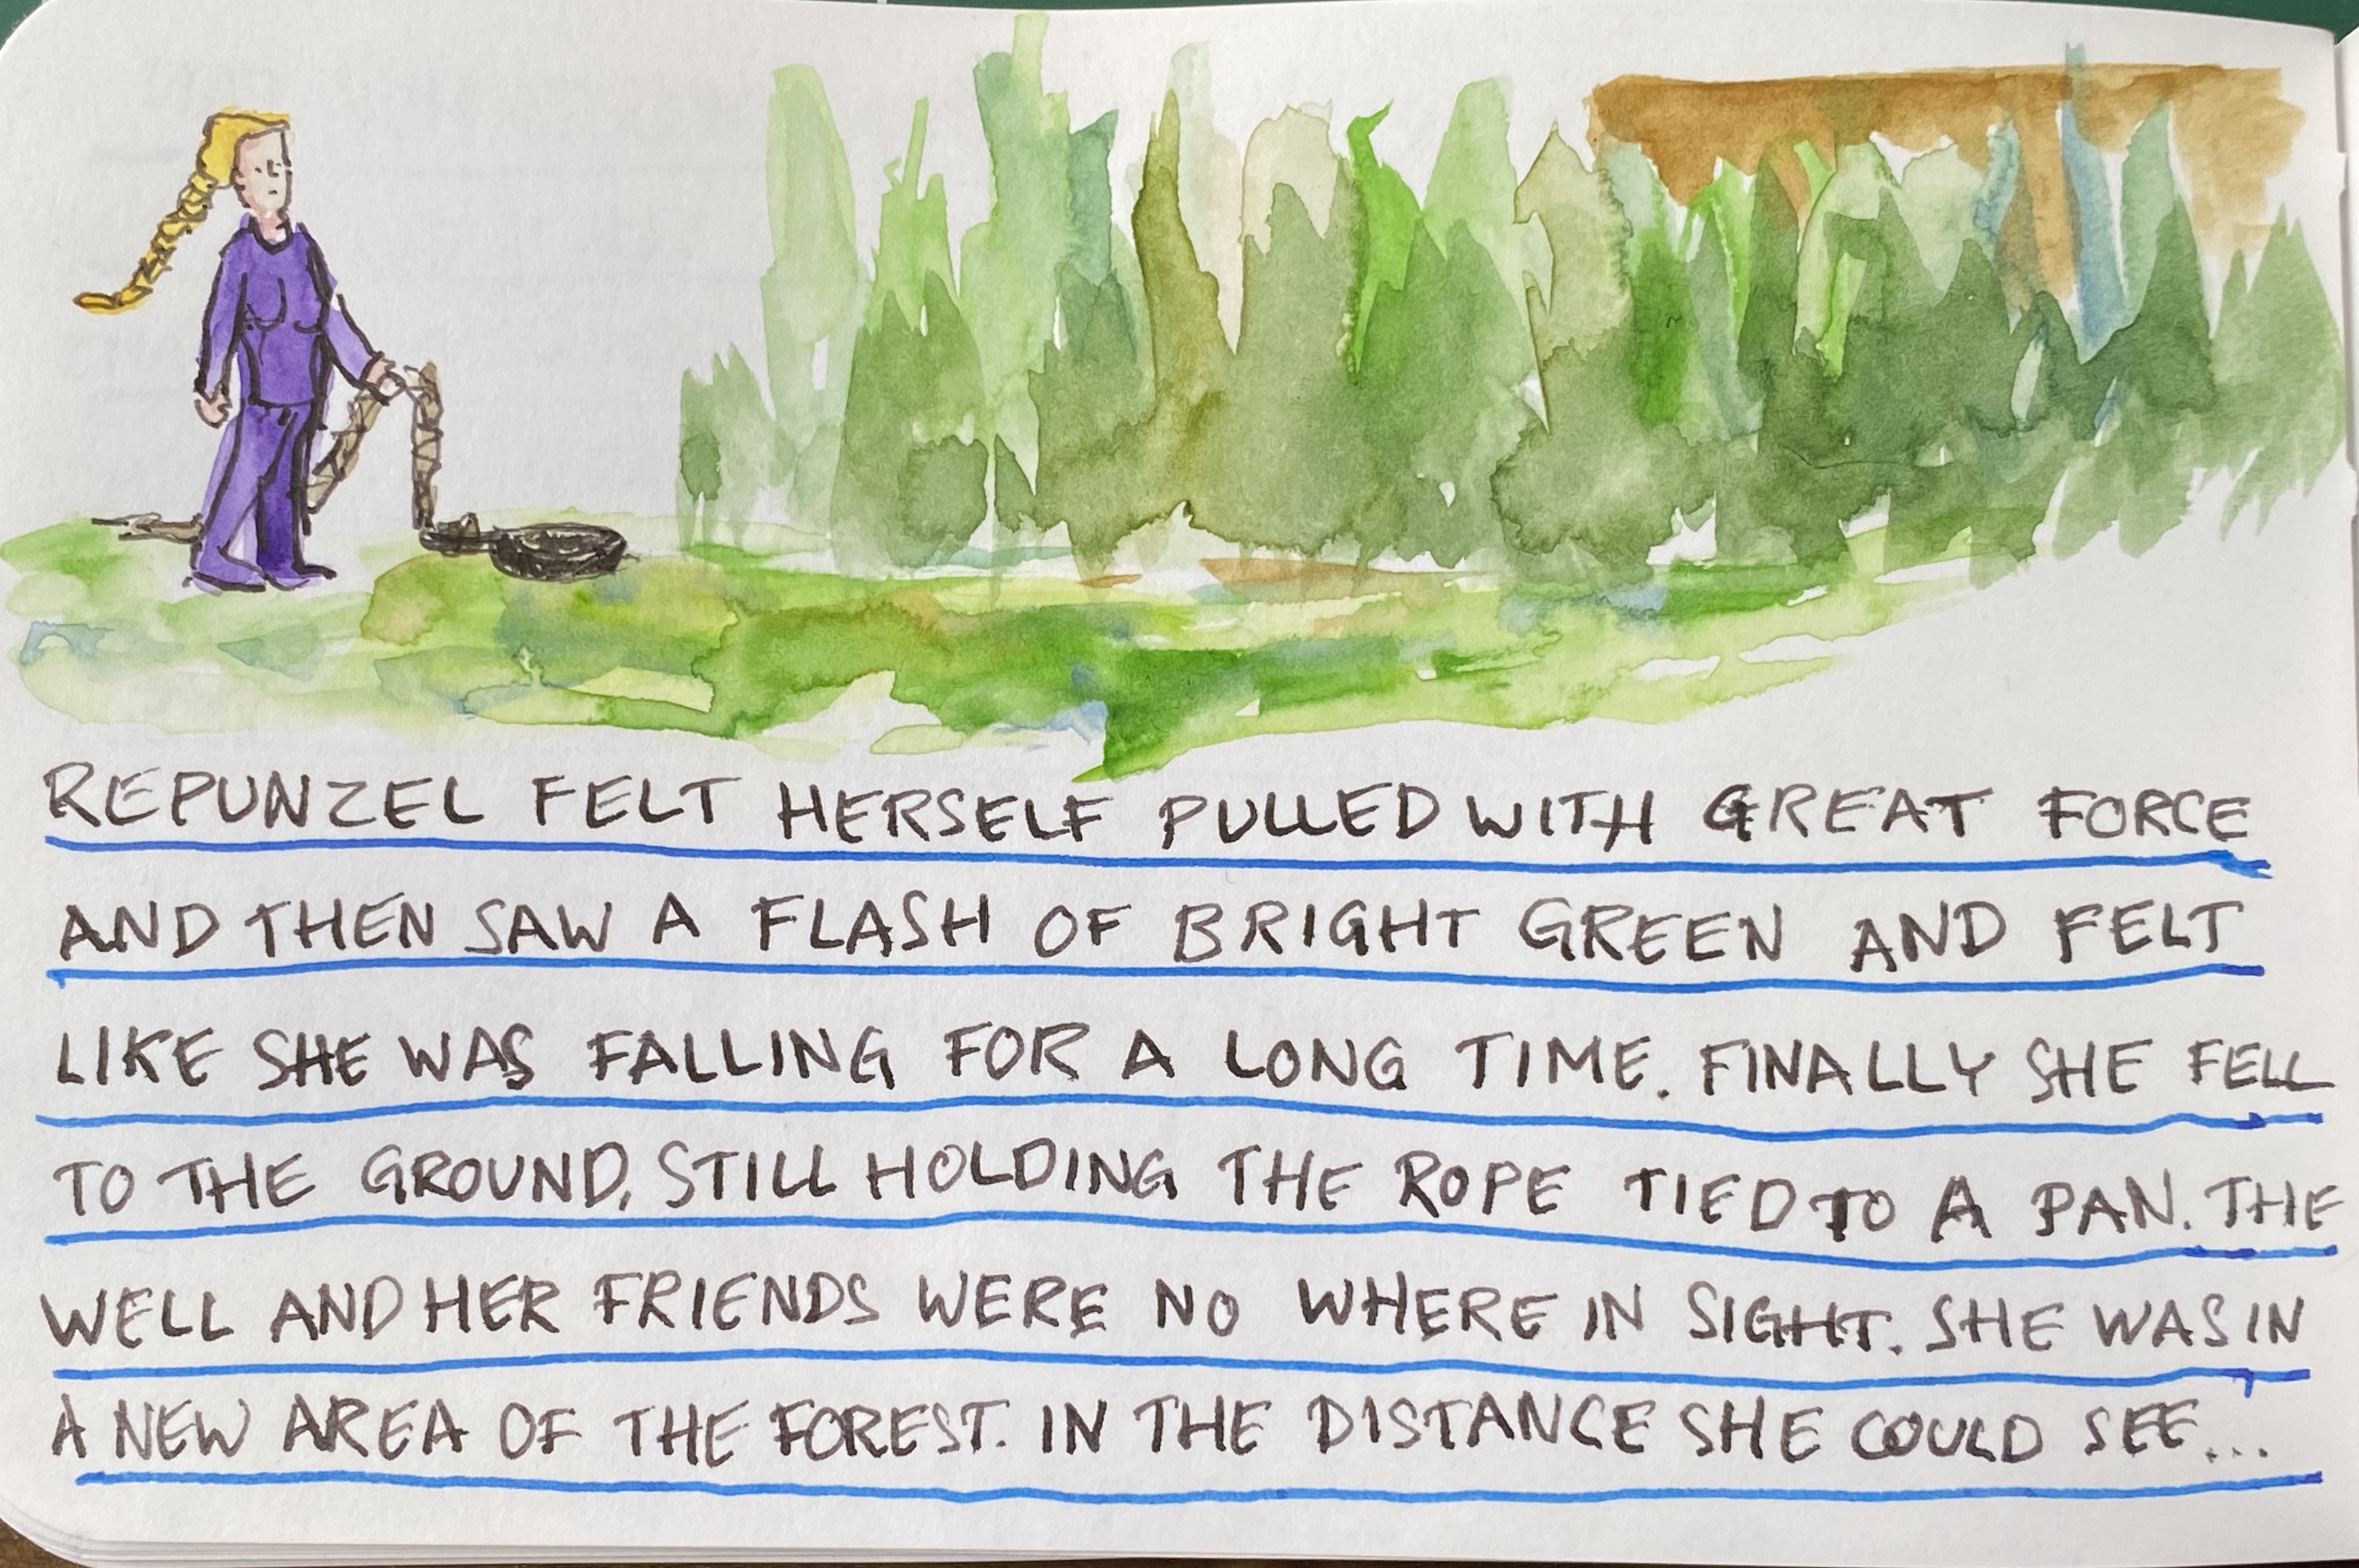 REPUNZEL FELT HERSELF PULLED WITH GREAT FORCE
AND THEN SAW A FLASH OF BRIGHT GREEN AND FELT
LIKE SHE WAS FALLING FOR A LONG TIME. FINALLY SHE FELL
TO THE GROUND, STILL HOLDING THE ROPE TIED TO A PAN. THE
WELL AND HER FRIENDS WERE NO WHERE IN SIGHT. SHE WAS IN
A NEW AREA OF THE FOREST. IN THE DISTANCE SHE COULD SEE...